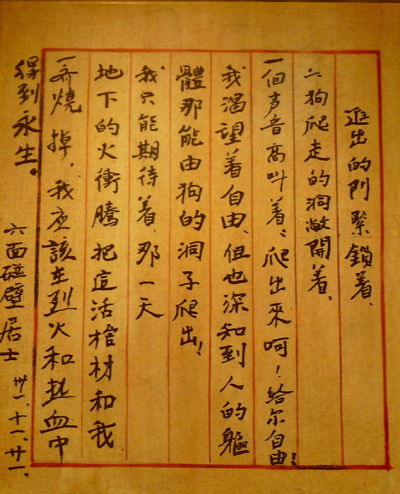 進出的門緊鎖着、
為狗爬走的洞敞開着、
一個声音高叫着：爬出來呵！給尔自由！
我渴望着自由、但也深知到人的軀
體那能由狗的洞子爬出！
我只能期待着、那一天
地下的火衝騰把這活棺材和我
一齊燒掉，我应該在烈火和热血中
得到永生。
六面碰壁居士 卅一、十一、廿一.